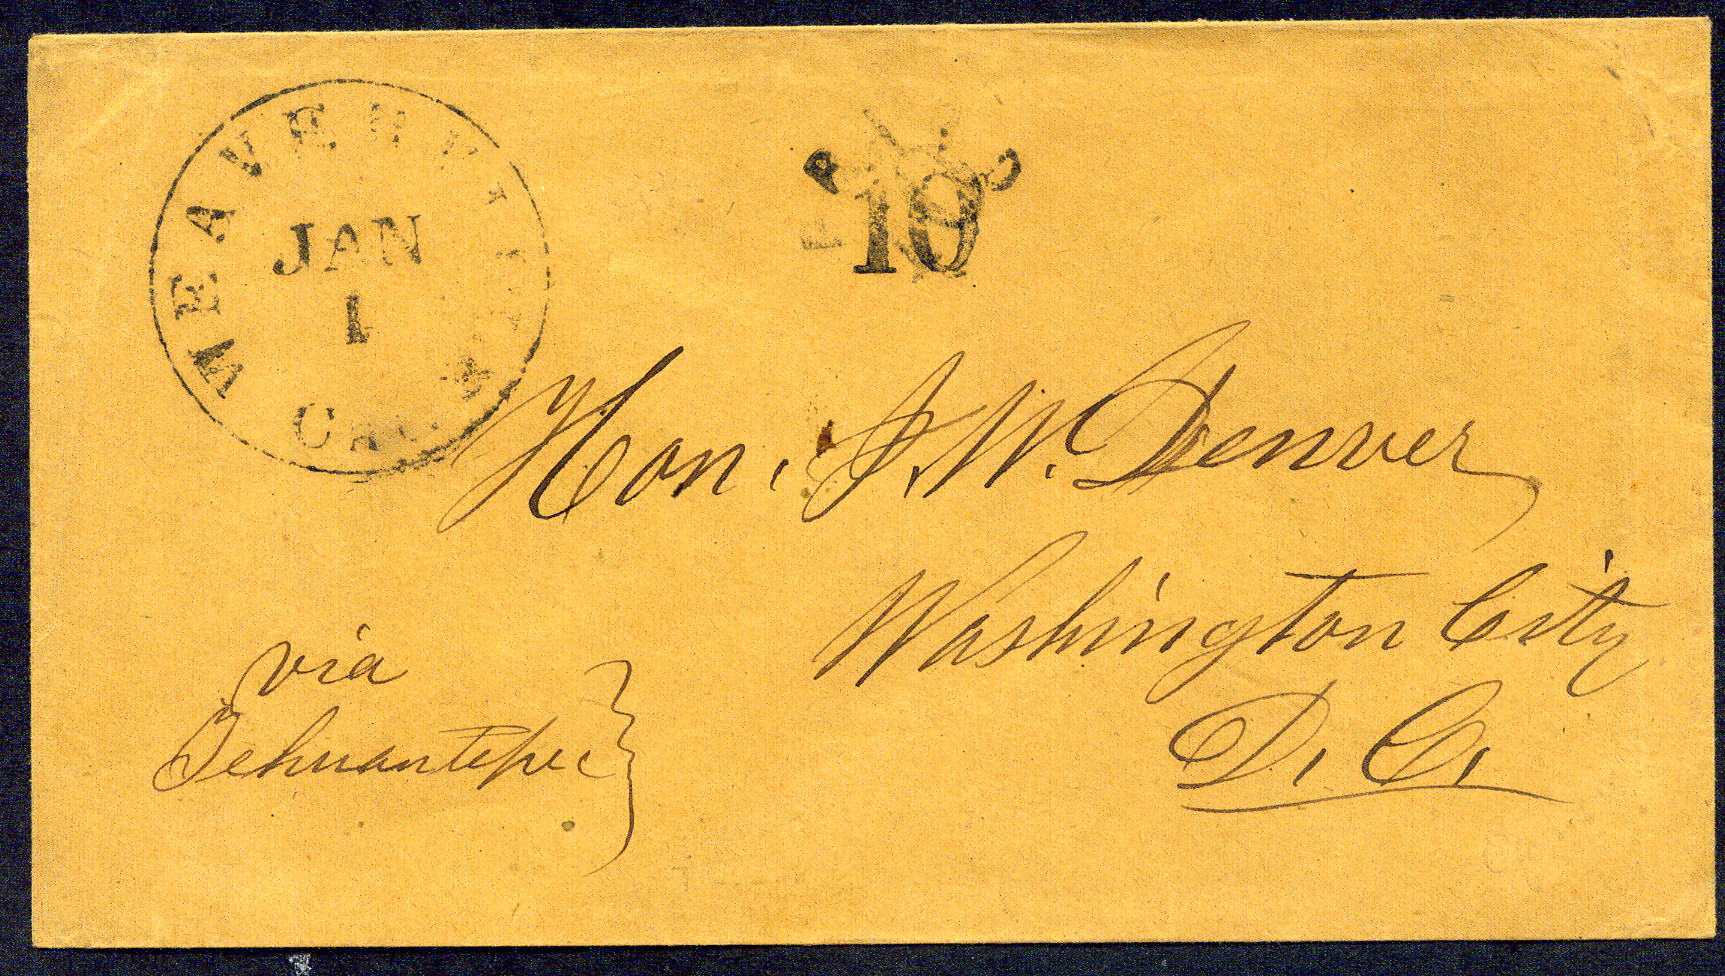 WEAVERVILLE
JAN
1
CAL.
PAID
10
Hon. J. W. Denver
Washington City
D. C.
via
Tehuantepec